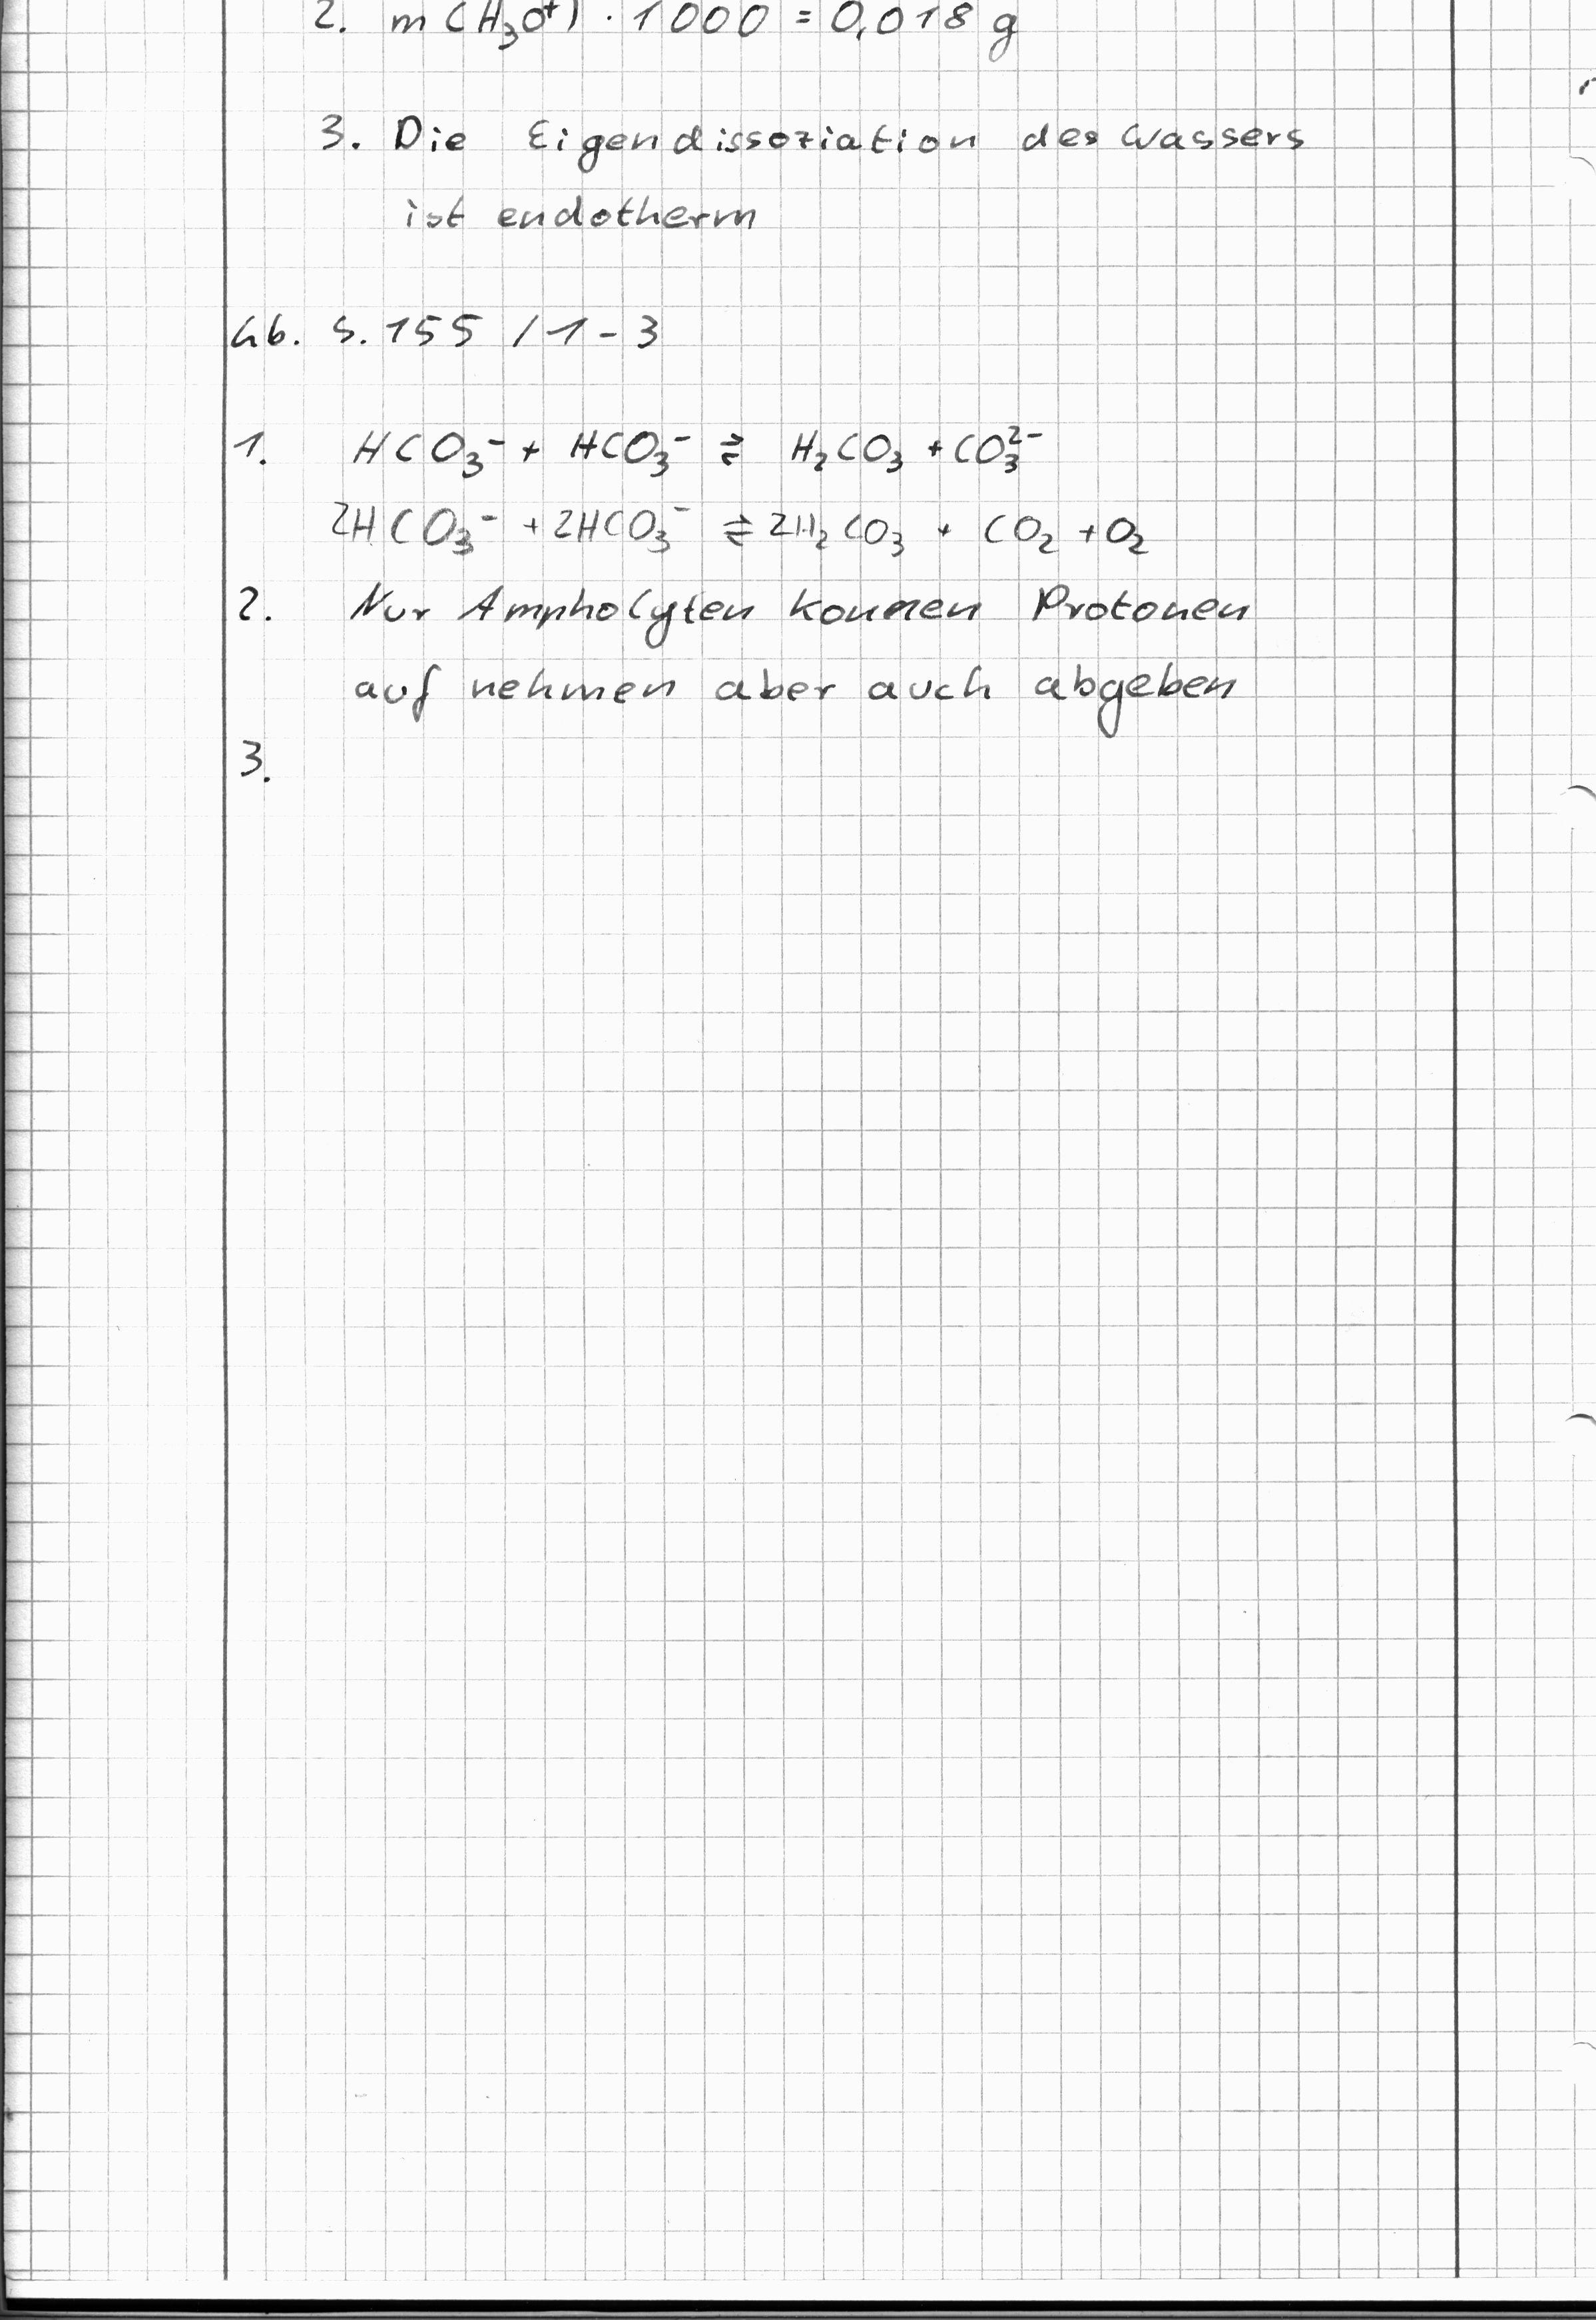 2. m(H₃O⁺) · 1000 = 0,018 g
3. Die Eigendissoziation des Wassers
ist endotherm
Gb. S. 155 / 1 - 3
1. HCO₃⁻ + HCO₃⁻ ⇌ H₂CO₃ + CO₃²⁻
2HCO₃⁻ + 2HCO₃⁻ ⇌ 2H₂CO₃ + CO₂ + O₂
2. Nur Ampholyten konnen Protonen
auf nehmen aber auch abgeben
3.